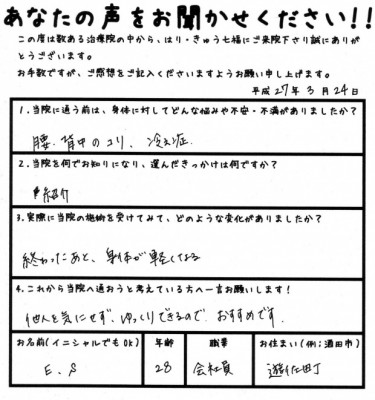 あなたの声をお聞かせください!!
この度は数ある治療院の中から、はり・きゅう七福にご来院下さり誠にありが
とうございます。
お手数ですが、ご感想をご記入くださいますようお願い申し上げます。
平成27年3月24日
1.当院に通う前は、身体に対してどんな悩みや不安・不満がありましたか?
腰、背中のコリ、冷え症
2.当院を何でお知りになり、選んだきっかけは何ですか?
紹介
3.実際に当院の施術を受けてみて、どのような変化がありましたか?
終わったあと、身体が軽くなる
4.これから当院へ通おうと考えている方へ一言お願いします!
他人を気にせず、ゆっくりできるので、おすすめです。
お名前(イニシャルでもOK) 年齢 職業 お住まい(例:酒田市)
E.S 28 会社員 遊佐町